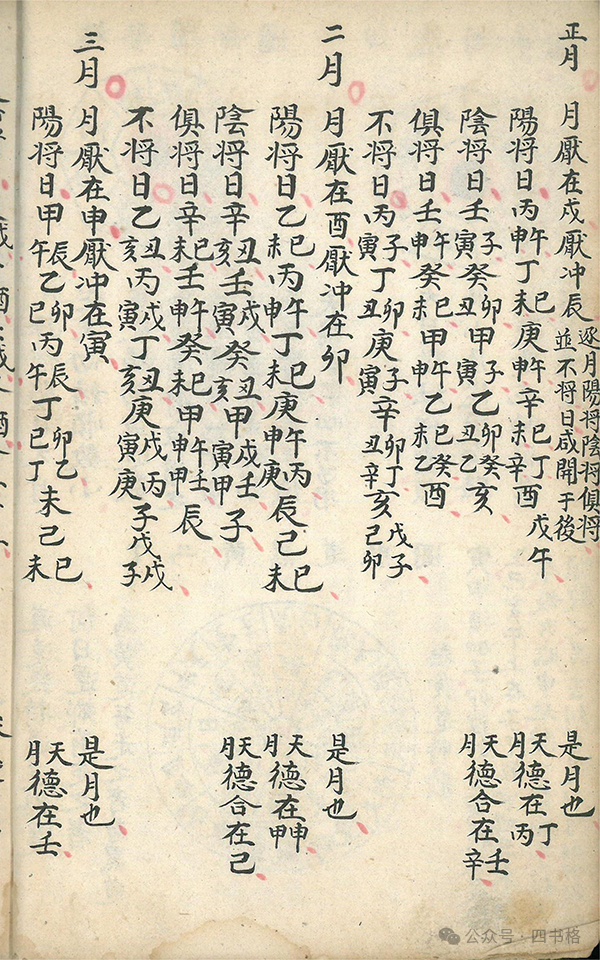 正月　月厭在戌厭冲辰逐月陽將陰將俱將並不將日咸開于後　是月也
陽將日丙午申丁巳未庚午申辛巳未丁辛酉戊午　天月德在丁丙
陰將日壬子寅癸卯丑甲子寅乙卯丑癸乙亥　天月德合在壬辛
俱將日壬午申癸巳未甲午申乙巳未癸乙酉
不將日丙子寅丁卯丑庚子寅辛卯丑丁辛亥戊子己卯
二月　月厭在酉厭冲在卯　是月也
陽將日乙巳未丙午申丁巳未庚午申丙庚辰己巳未　天月德在申甲
陰將日辛丑亥壬戌寅癸丑亥甲戌寅壬甲子　天月德合在己
俱將日辛巳未壬午申癸巳未甲午申壬甲辰
不將日乙丑亥丙戌寅丁丑亥庚戌寅丙庚子戊戌子
三月　月厭在申厭冲在寅　是月也
陽將日甲辰午乙卯巳丙辰午丁卯巳乙丁未己巳未　天月德在壬
公众号·四书格